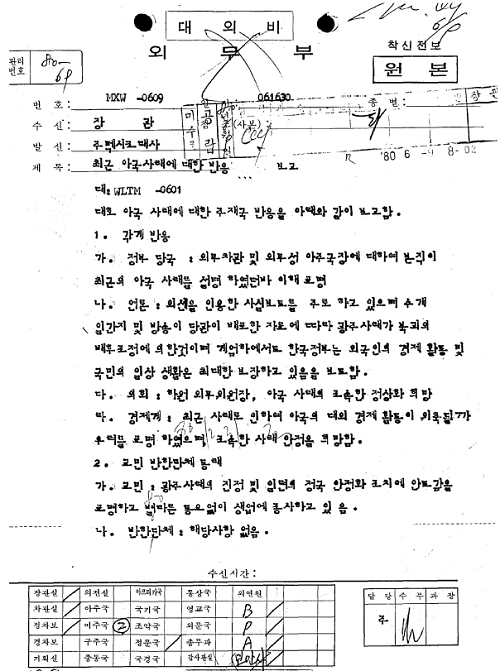 대 외 비
외 무 부
착신전보
관리
번호
80-
원 본
번 호 : MXW -0609 061630 종 별 :
수 신 : 장 관 (사본)
발 신 : 주멕시코대사
'80 6 -9 8 - 02
제 목 : 최근 아국사태에 대한 반응 보고
대: WLTM -0601
대호 아국 사태에 대한 주재국 반응을 아래와 같이 보고함.
1. 각계 반응
가. 정부 당국 : 외무차관 및 외무성 아주국장에 대하여 본직이
최근의 아국 사태를 설명 하였던바 이해 표명
나. 언론 : 외신을 인용한 사실보도를 주로 하고 있으며 수개
일간지 및 방송이 당관이 배포한 자료에 따라 광주사태가 북괴의
배후조정에 의한것이며 계엄하에서도 한국정부는 외국인의 경제 활동 및
국민의 일상 생활은 최대한 보장하고 있음을 보도함.
다. 의회 : 하원 외무위원장, 아국 사태의 조속한 정상화 희망
라. 경제계 : 최근 사태로 인하여 아국의 대외 경제 활동이 위축될까
우려를 표명 하였으며, 조속한 사태 안정을 희망함.
2. 교민 반한단체 동태
가. 교민 : 광주사태의 진정 및 일련의 정국 안정화 조치에 안도감을
표명하고 별다른 동요없이 생업에 종사하고 있 음.
나. 반한단체 : 해당사항 없음.
수신시간 :
장관실 의전실 아프리카국 통상국 외연원
차관실 아주국 국기국 영교국 B
정차보 미주국 2 조약국 외문국 P
경차보 구주국 정문국 총무과 A
기획실 중동국 국경국 감사관실
담 당 수 무 과 장
주